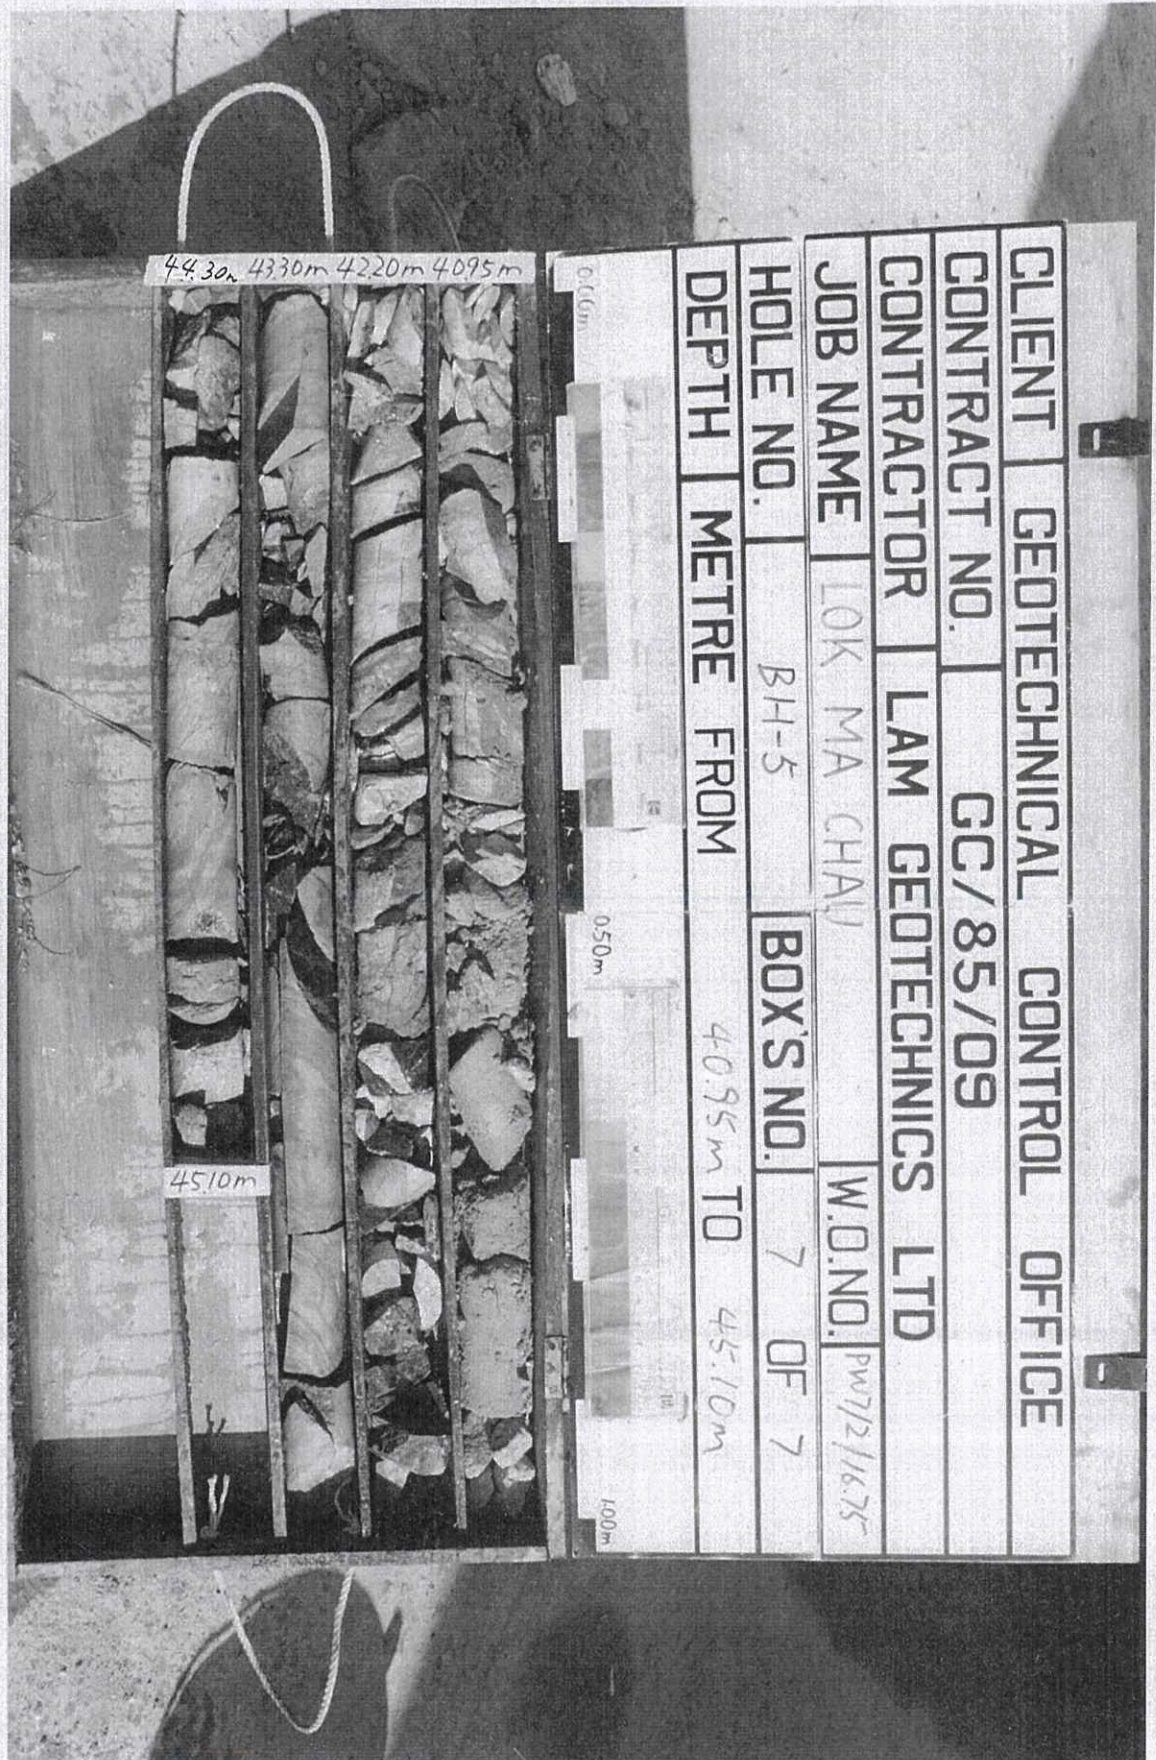 CLIENT GEOTECHNICAL CONTROL OFFICE
CONTRACT NO. GC/85/09
CONTRACTOR LAM GEOTECHNICS LTD
JOB NAME LOK MA CHAU W.O.NO. PW7/2/16.75
HOLE NO. BH-5 BOX'S NO. 7 OF 7
DEPTH METRE FROM 40.95m TO 45.10m
0.00m 0.50m 1.00m
40.95m
42.20m
43.30m
44.30m
45.10m